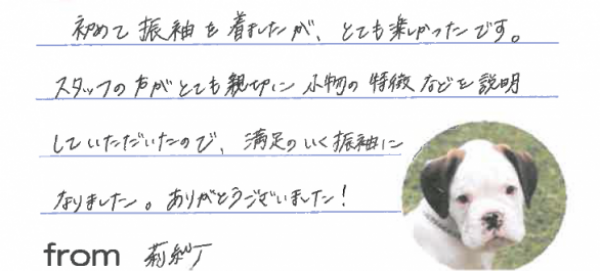 初めて振袖を着ましたが、とても楽しかったです。
スタッフの方がとても親切に小物の特徴などを説明
していただいたので、満足のいく振袖に
なりました。ありがとうございました！
from